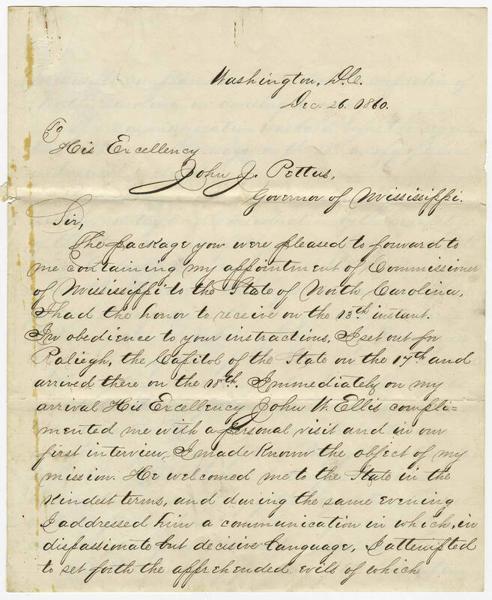 Washington, D.C.
Dec. 26. 1860.
To
His Excellency
John J. Pettus,
Governor of Mississippi.
Sir,
The package you were pleased to forward to
me containing my appointment of Commissioner
of Mississippi to the State of North Carolina,
I had the honor to receive on the 13th instant.
In obedience to your instructions, I set out for
Raleigh, the Capitol of the State on the 17th and
arrived there on the 18th. Immediately on my
arrival His Excellency John W. Ellis compli-
mented me with a personal visit and in our
first interview, I made known the object of my
mission. He welcomed me to the State in the
kindest terms, and during the same evening
I addressed him a communication in which, in
dispassionate but decisive language, I attempted
to set forth the apprehended evils of which